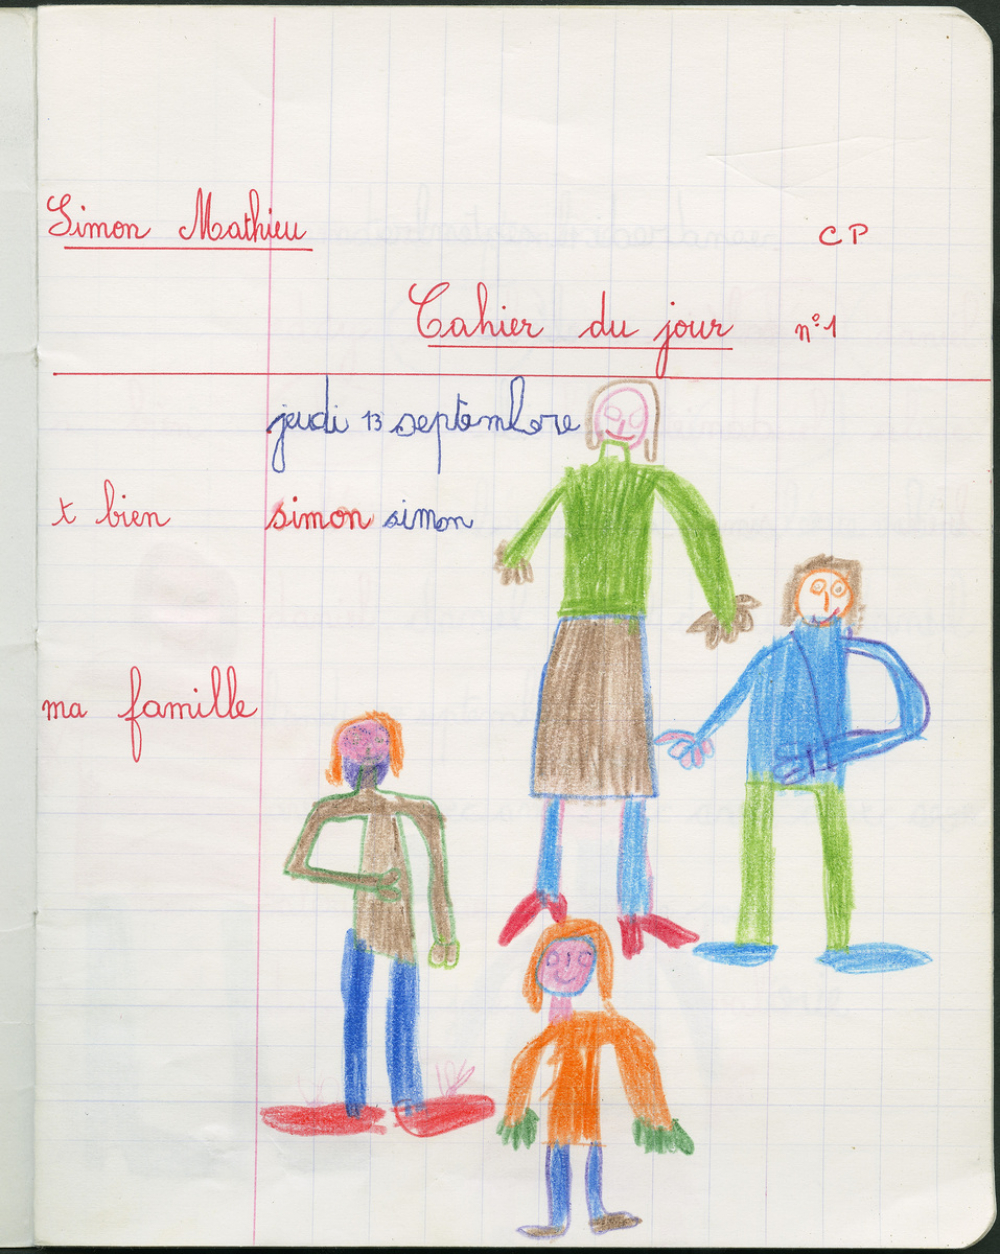 Simon Mathieu CP
Cahier du jour n°1
jeudi 13 septembre
t bien simon simon
ma famille